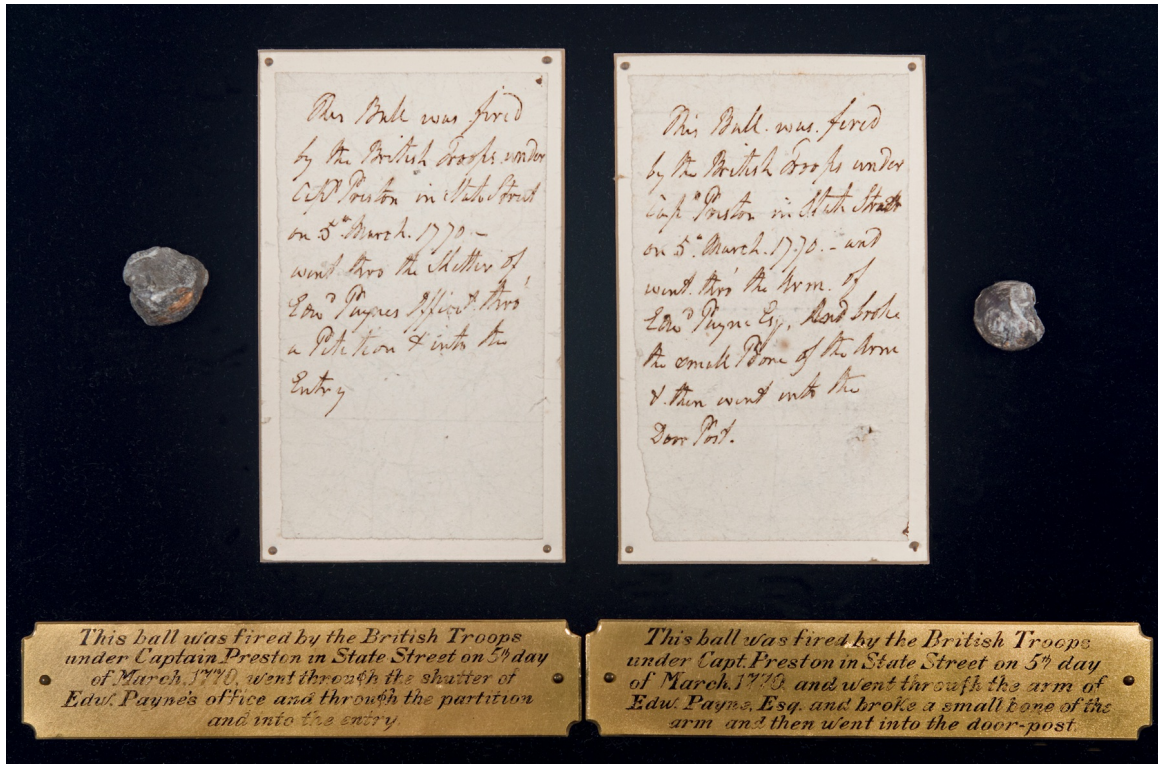 This Ball was fired
by the British Troops under
Capᵗ Preston in State Street
on 5ᵗʰ March. 1770 –
went thro the Shutter of
Edwᵈ Paynes Office & thro'
a Petition & into the
Entry
This Ball. was. fired
by the British Troops under
Capᵗ Preston in State Street
on 5ᵗʰ March. 1770. – and
went. thro' the Arm. of
Edwᵈ Payne Esq. And broke
the small Bone of the Arm
& then went into the
Door Post.
This ball was fired by the British Troops
under Captain Preston in State Street on 5th day
of March, 1770, went through the shutter of
Edw. Payne's office and through the partition
and into the entry.
This ball was fired by the British Troops
under Capt. Preston in State Street on 5th day
of March, 1770, and went through the arm of
Edw. Payne, Esq. and broke a small bone of the
arm and then went into the door-post.